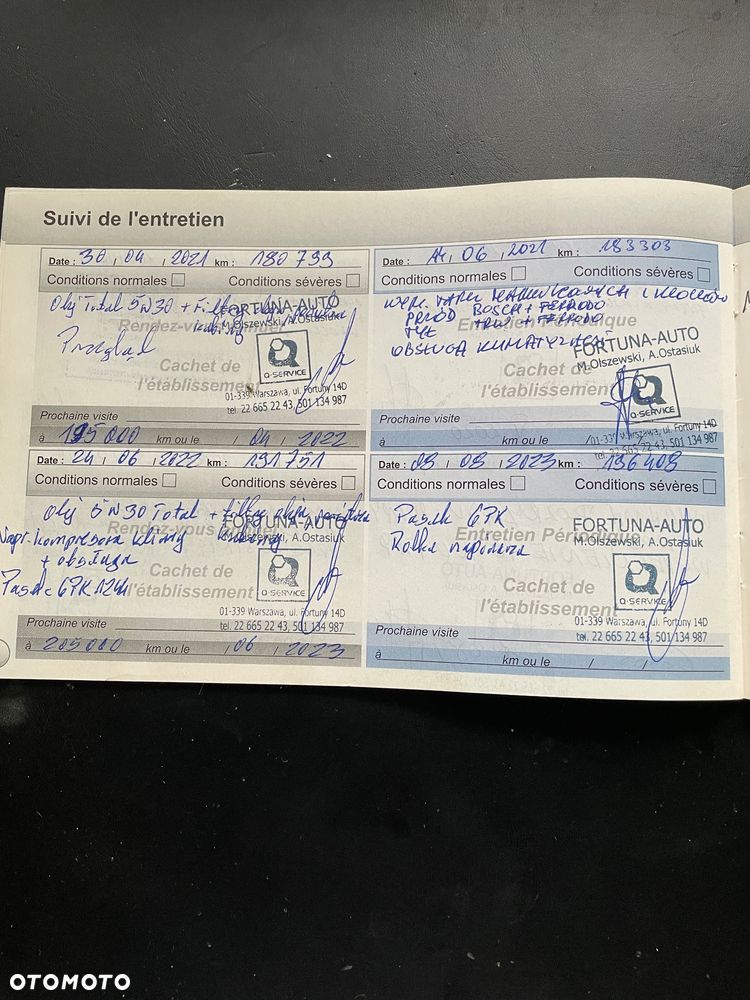 Suivi de l'entretien
Date : 30 04 2021 km : 180 799
Conditions normales Conditions sévères
Olej Total 5W30 + Filtry
Rendez-vous
Przegląd
FORTUNA-AUTO
M.Olszewski, A.Ostasiuk
Cachet de
l'établissement
Q-SERVICE
01-339 Warszawa, ul. Fortuny 14D
tel. 22 665 22 43, 501 134 987
Prochaine visite
à 195 000 km ou le / 04 / 2022
Date : 06 2021 km : 183303
Conditions normales Conditions sévères
WYM. TARCZ HAMULCOWYCH I KLOCKÓW
PRZÓD BOSCH + FERODO
TYŁ TRW + FERODO
Entretien Périodique
OBSŁUGA KLIMATYZACJI
FORTUNA-AUTO
M.Olszewski, A.Ostasiuk
Cachet de
l'établissement
Q-SERVICE
01-339 Warszawa, ul. Fortuny 14D
tel. 22 665 22 43, 501 134 987
Prochaine visite
à km ou le /
Date : 24 06 2022 km : 191751
Conditions normales Conditions sévères
Olej 5W30 Total + filtry oleju powietrza
kabiny
Rendez-vous
Napr. kompresora klimy
+ obsługa
Pasek 6PK
FORTUNA-AUTO
M.Olszewski, A.Ostasiuk
Cachet de
l'établissement
Q-SERVICE
01-339 Warszawa, ul. Fortuny 14D
tel. 22 665 22 43, 501 134 987
Prochaine visite
à 205 000 km ou le / 06 / 2023
Date : 2023 km : 196409
Conditions normales Conditions sévères
Pasek 6PK
Rolka napinacza
Entretien Périodique
FORTUNA-AUTO
M.Olszewski, A.Ostasiuk
Cachet de
l'établissement
Q-SERVICE
01-339 Warszawa, ul. Fortuny 14D
tel. 22 665 22 43, 501 134 987
Prochaine visite
à km ou le / /
OTOMOTO